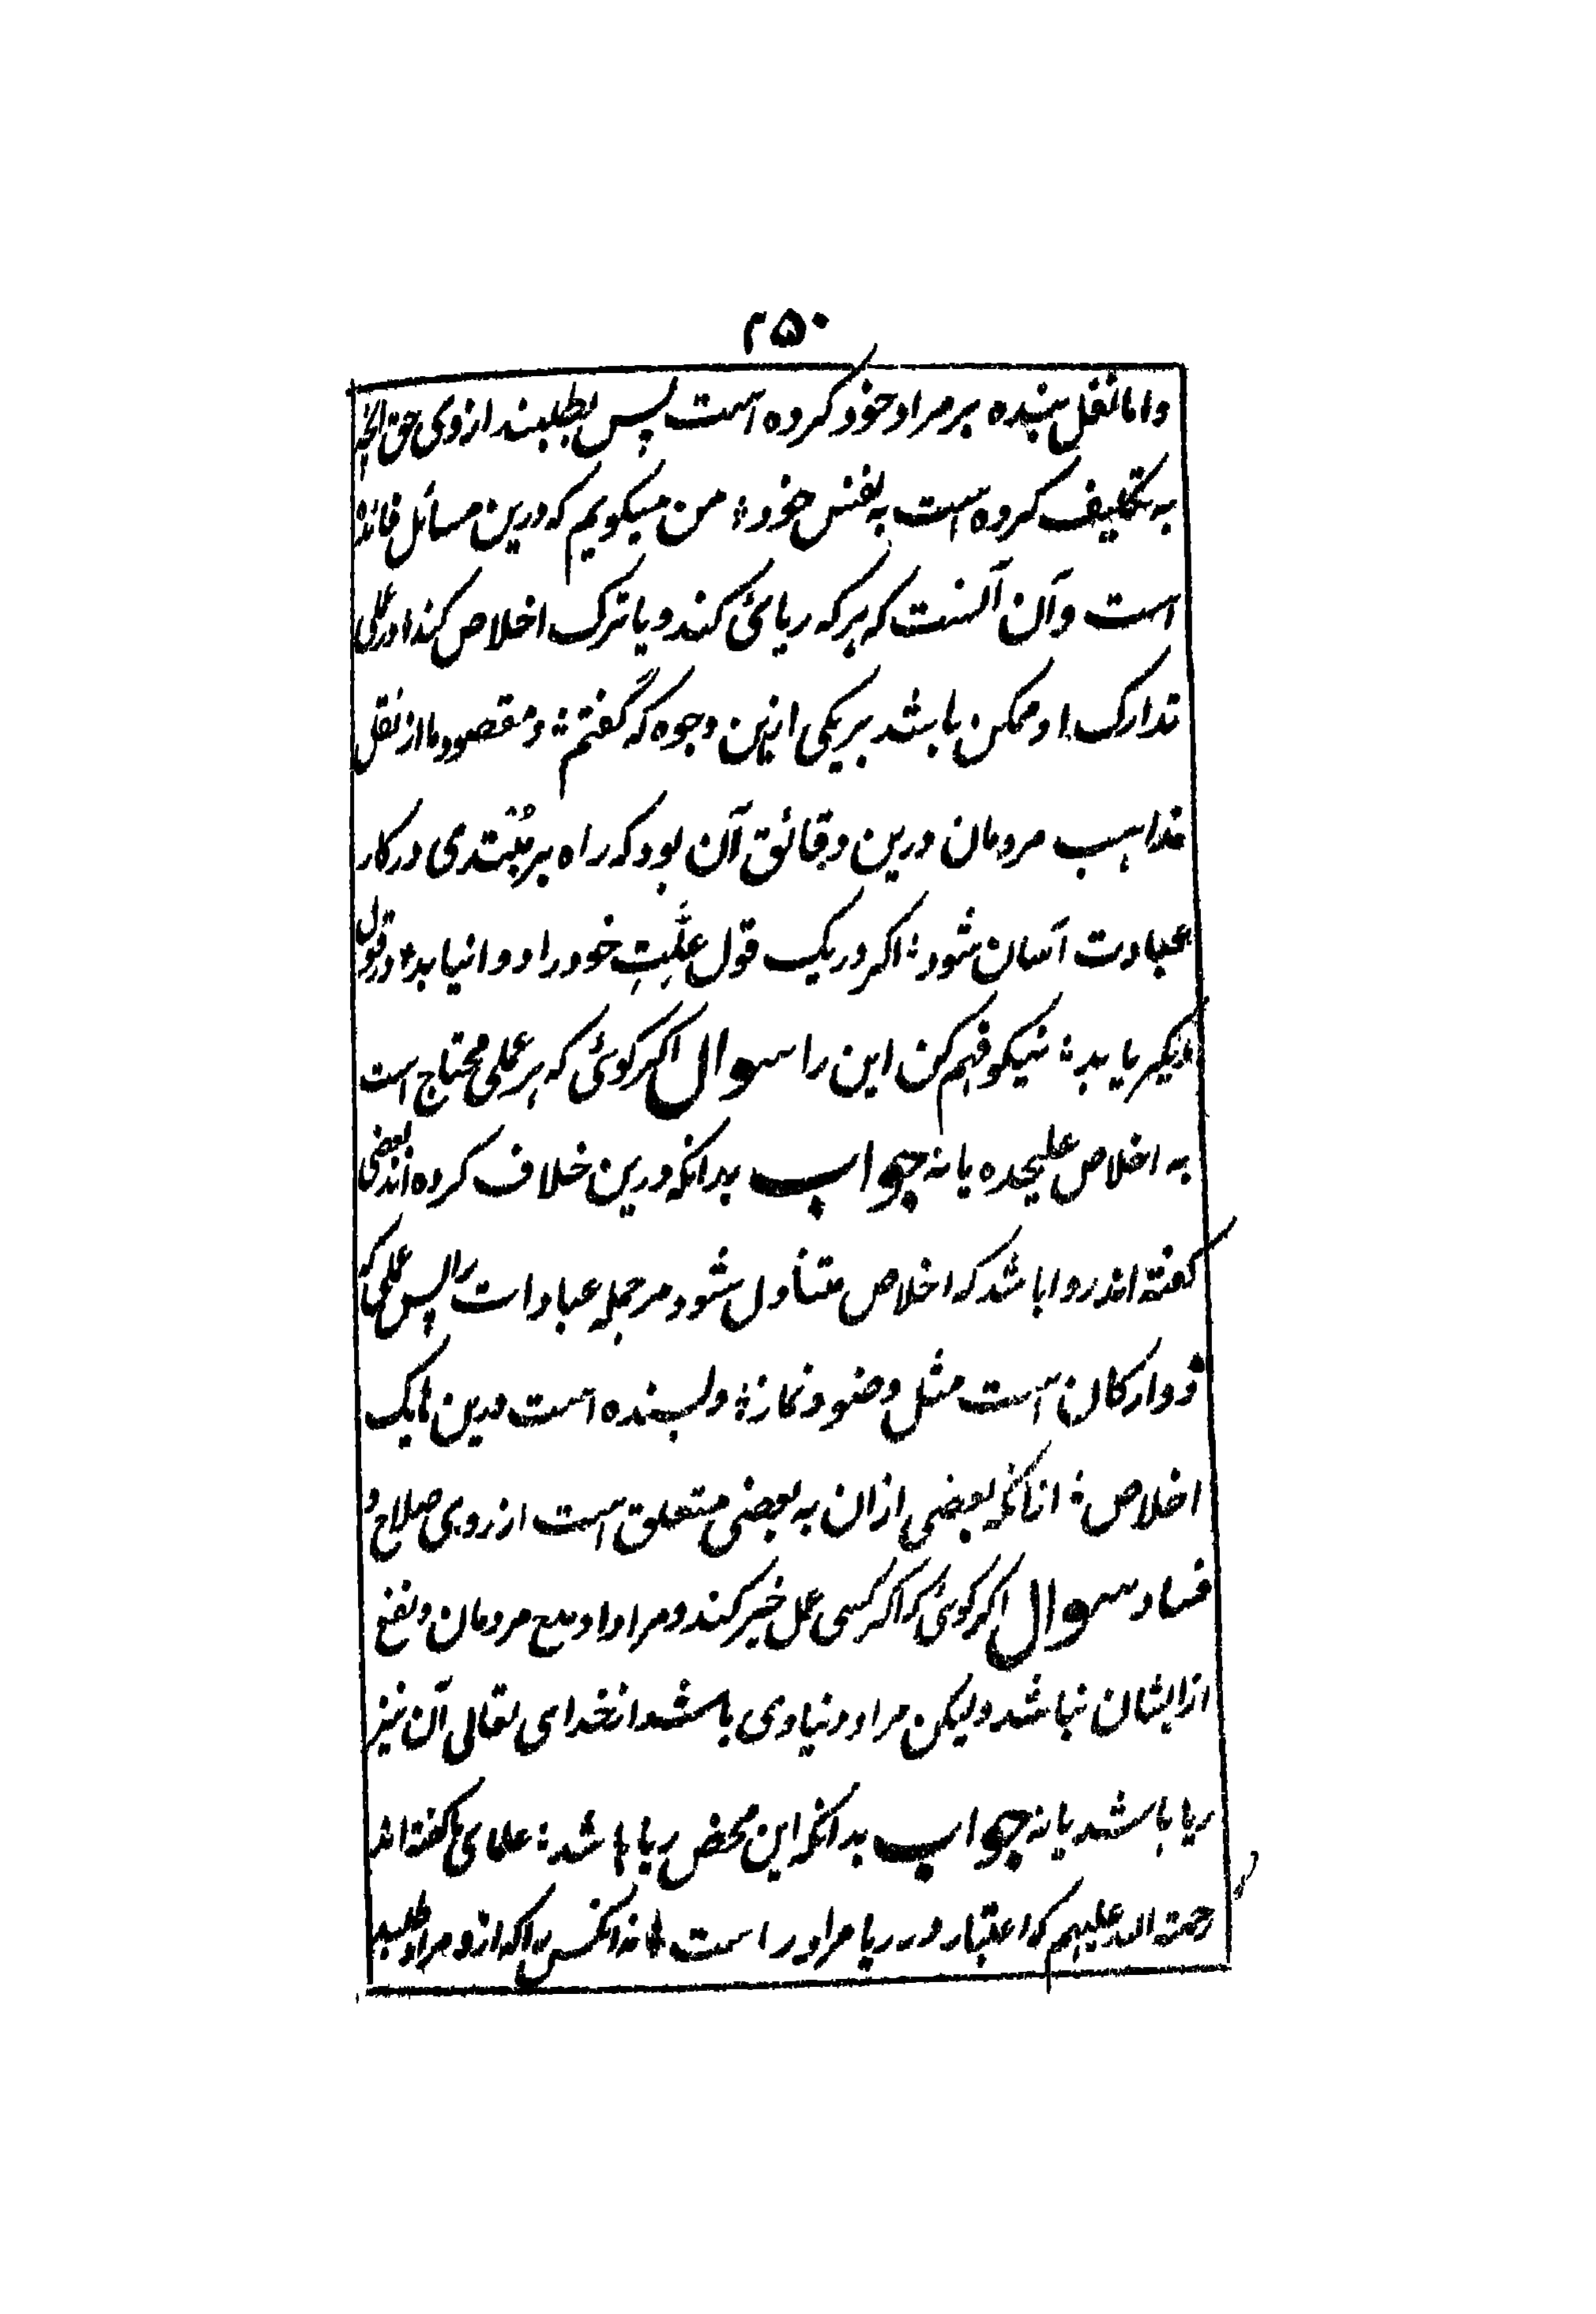 ۲۵۰
واما نفل بنده بر مراد خود کرده است پس بطلبند از وی حق آنچه
به تکلیف کرده است به نفس خود؛ من میگویم که درین مسائل فائده
است وآن آنست که هرکه ریائی کند و یا ترک اخلاص کند او در عملی
تدارک او ممکن باشد بر یکی ازین وجوه که گفتم؛ و مقصود ما از نقل
مذاهب مردمان درین دقائق آن بود که راه بر مُبْتدی در کار
عبادت آسان شود؛ اگر در یک قول علّتِ خود را دوا نیابد؛ در قول
دیگر یابد؛ نیکو فهم کن این را سوال اگر گوئی که هر عملی محتاج است
به اخلاص علیحده یا نه جواب بدانکه درین خلاف کرده اند بعضی
گفته اند روا باشد که اخلاص متناول شود مر جمله عبادات را پس عملی که
ذو ارکان است مثل وضو و نماز؛ و بسنده است درین ها یک
اخلاص؛ ازانکه بعضی ازان به بعضی متعلق است از روی صلاح و
فساد سوال اگر گوئی که اگر کسی عمل خیر کند و مراد او مدح مردمان و نفع
از ایشان نباشد ولیکن مراد دنیاوی باشد از خدای تعالی آن نیز
ریا باشد یا نه جواب بدانکه این محض ریا باشد؛ علمای ما گفته اند
رحمته الله علیهم که اعتبار در ریا مراد راست نه انکس را که ازو مراد طلبد